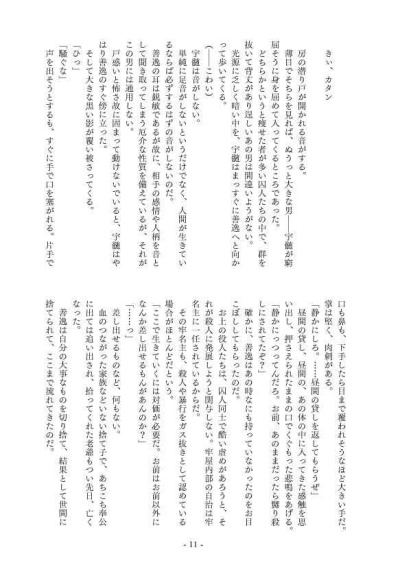 きぃ、カタン
房の潜り戸が開かれる音がする。
薄目でそちらを見れば、ぬうっと大きな男――宇髄が窮
屈そうに身を屈めて入ってくるところであった。
どちらかというと痩せた者が多い囚人たちの中で、群を
抜いて背丈があり逞しいあの男は間違いようがない。
光源に乏しく暗い中を、宇髄はまっすぐに善逸へと向か
って歩いてくる。
(――こわい)
宇髄は音がしない。
単純に足音がしないというだけでなく、人間が生きてい
るならば必ずするはずの音がしないのだ。
善逸の耳は鋭敏であるが故に、相手の感情や人柄を音と
して聞き取ってしまう厄介な性質を備えているが、それが
この男には通用しない。
戸惑いと怖さ故に固まって動けないでいると、宇髄はや
はり善逸のすぐ傍に立った。
そして大きな黒い影が覆い被さってくる。
「ひっ」
「騒ぐな」
声を出そうとするも、すぐに手で口を塞がれる。片手で
口も鼻も、下手したら目まで覆われそうなほど大きい手だ。
掌は堅く、肉刺がある。
「静かにしろ。……昼間の貸しを返してもらうぜ」
昼間の貸し、昼間の、あの体の中に入ってきた感触を思
い出し、押さえられたままの口でくぐもった悲鳴をあげる。
「静かにっつってんだろ。お前、あのままだったら嬲り殺
しにされてたぞ?」
確かに、善逸はあの時なにも持っていなかったのをお目
こぼししてもらったのだ。
お上の役人たちは、囚人同士で酷い虐めがあろうと、そ
れが殺人に発展しようと関与しない。牢屋内部の自治は牢
名主に一任されているからだ。
その牢名主も、殺人や暴行をガス抜きとして認めている
場合がほとんどだという。
「ここで生きていくには対価が必要だ。お前はお前以外に
なんか差し出せるもんがあんのか?」
「……っ」
差し出せるものなど、何もない。
血のつながった家族などいない捨て子で、あちこち奉公
に出ては追い出され、拾ってくれた老爺もつい先日、亡く
なった。
善逸は自分の大事なものを切り捨て、結果として世間に
捨てられて、ここまで流れてきたのだ。
- 11 -